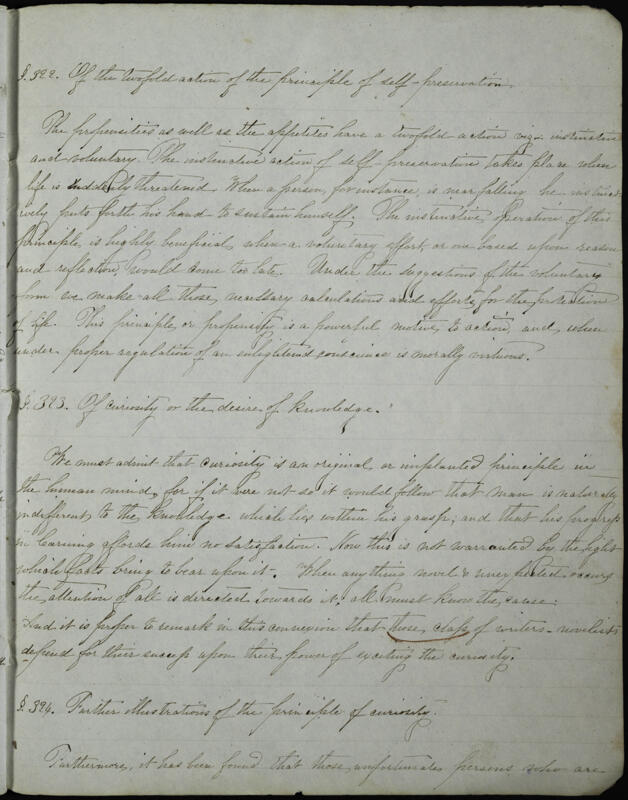 §. 322. Of the twofold action of the principle of self-preservation.
The propensities as well as the appetites have a twofold action viz- instinctive
and voluntary. The instinctive action of self-preservation takes place when
life is suddenly threatened. When a person, for instance, is near falling he instinct
ively puts forth his hand to sustain himself. The instinctive operation of this
principle, is highly beneficial, when a voluntary effort, or one based upon reason
and reflection, would come too late. Under the suggestions of the voluntary
form we make all those, necessary calculations and efforts, for the protection
of life. This principle, or propensity, is a powerful motive to action, and, when
under, proper regulation of an enlightened conscience is morally virtuous.
§. 323. Of curiosity or the desire of knowledge.
We must admit that curiosity is an original or implanted principle in
the human mind, for if it were not so it would follow that man is naturally
indifferent to the knowledge which lies within his grasp; and that his progress
in learning affords him no satisfaction. Now this is not warranted by the light
which facts bring to bear upon it. When anything novel & unexpected, occurs
the attention of all is directed towards it; all must know the, cause:
And it is proper to remark in this connexion that those, class of writers- novelists
depend for their success upon their power of exciting the curiosity.
§. 324. Further illustrations of the principle of curiosity.
Furthermore, it has been found that those, unfortunate persons who are